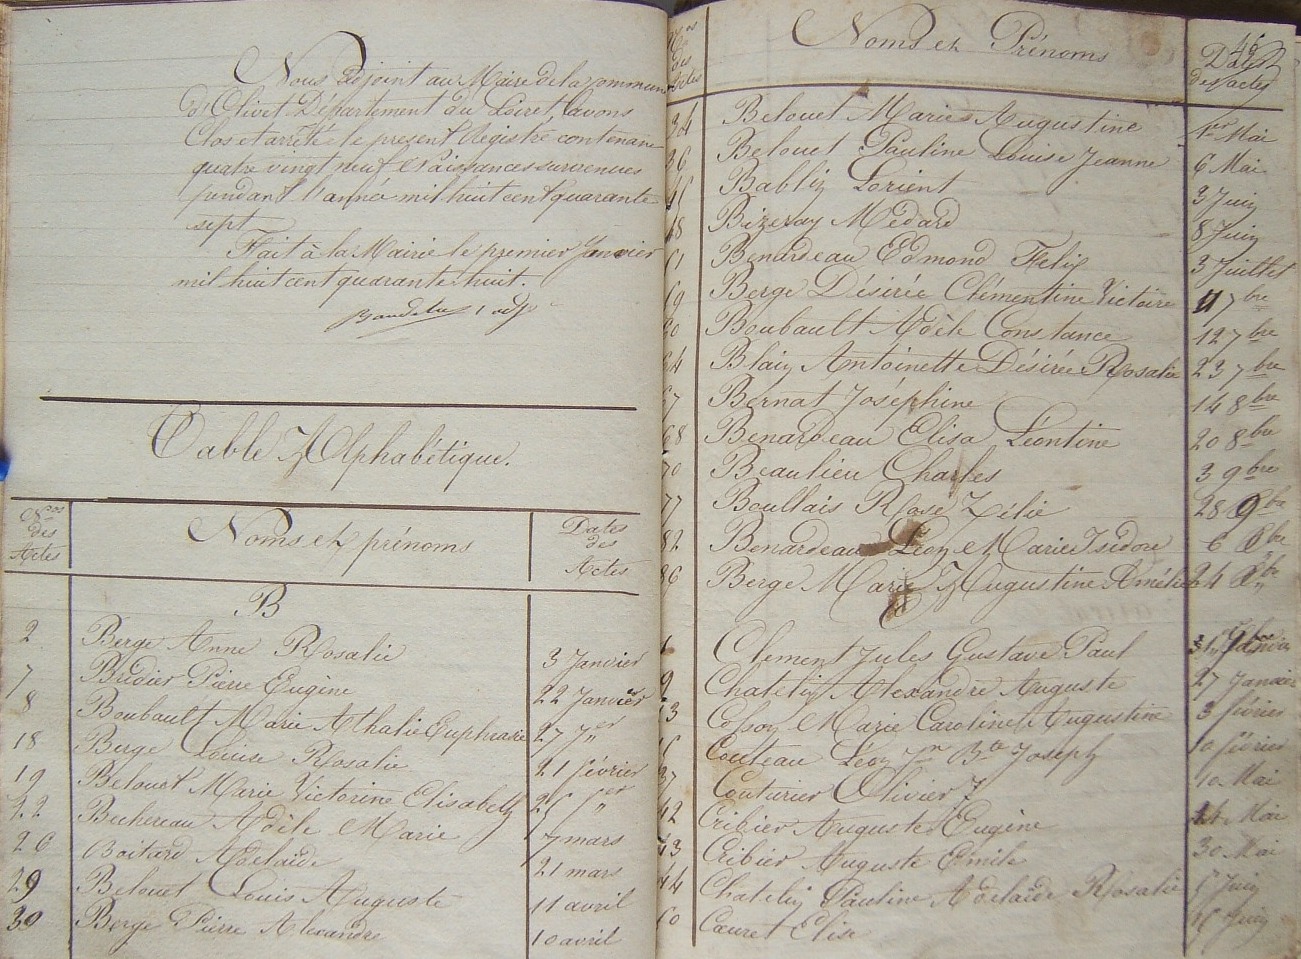 Nous adjoint au Maire de la commune
d'Olivet Département du Loiret, avons
Clos et arrêté le present Registre contenant
quatre vingt neuf Naissances survenues
pendant l'année mil huit cent quarante
sept
Fait à la Mairie le premier Janvier
mil huit cent quarante huit.
Table Alphabétique.
Nos des Actes Noms et prénoms Dates des Actes
B
2 Berge Anne Rosalie 3 Janvier
7 Bredier Pierre Eugène 22 Janvier
8 Boubault Marie Athalie Euphrasie 27 Jer
18 Berge Louise Rosalie 21 février
19 Belouet Marie Victorine Elisabeth 25 fer
22 Buhereau Adèle Marie 7 mars
26 Boitard Adelaide 21 mars
29 Belouet Louis Auguste 11 avril
30 Berge Pierre Alexandre 10 avril
46
Nos des Actes Noms et Prénoms Dates des actes
34 Belouet Marie Augustine 1er Mai
36 Belouet Pauline Louise Jeanne 6 Mai
Bablin Lorient 3 Juin
48 Bizeray Médard 8 Juin
Benardeau Edmond Felix 3 Juillet
Berge Désirée Clémentine Victoire 7bre
Boubault Adèle Constance 12 7bre
64 Blain Antoinette Désirée Rosalie 23 7bre
67 Bernat Joséphine 14 8bre
68 Benardeau Elisa Léontine 20 8bre
70 Beaulieu Charles 3 9bre
77 Boullais Rose Zélie 28 9bre
82 Benardeau Léon Marie Isidore 6 Xbre
86 Berge Marie Augustine Amélie 24 Xbre
Clement Jules Gustave Paul Janvier
9 Chatelin Alexandre Auguste 27 Janvier
13 Cosson Marie Caroline Augustine 3 février
Couteau Léon Jn Bte Joseph 10 février
37 Couturier Olivier J 10 Mai
42 Cribier Auguste Eugène Mai
43 Cribier Auguste Emile 30 Mai
44 Chatelin Pauline Adelaide Rosalie 5 Juin
Cœuret Elise Juin